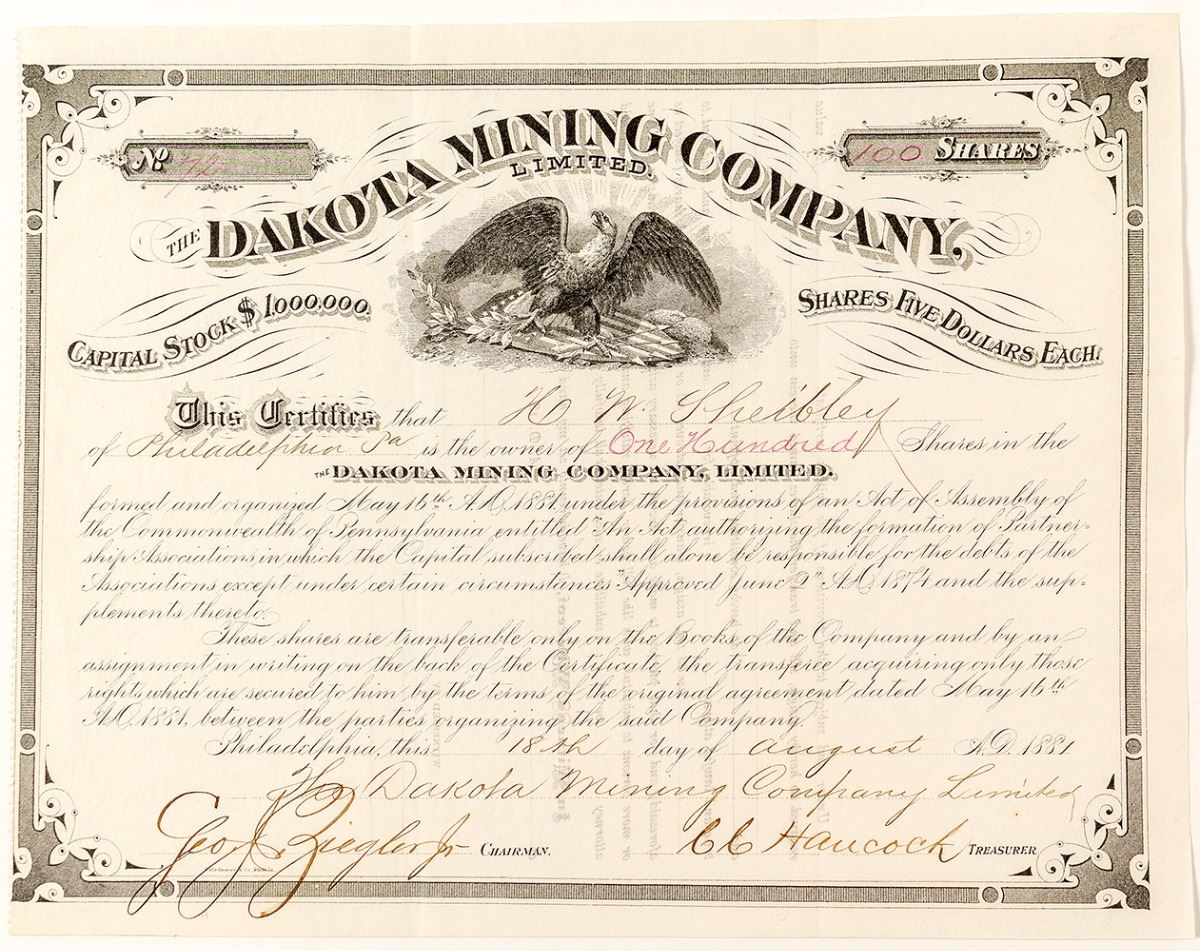 No 72
100 SHARES
THE DAKOTA MINING COMPANY,
LIMITED.
CAPITAL STOCK $1,000,000.
SHARES FIVE DOLLARS EACH.
This Certifies that H W Sheibley
of Philadelphia Pa is the owner of One Hundred Shares in the
THE DAKOTA MINING COMPANY, LIMITED.
formed and organized May 16th A.D. 1881, under the provisions of an Act of Assembly of
the Commonwealth of Pennsylvania entitled "An Act authorizing the formation of Partner-
ship Associations in which the Capital subscribed shall alone be responsible for the debts of the
Associations except under certain circumstances" Approved June 2" A.D. 1874 and the sup-
plements thereto.
These shares are transferable only on the Books of the Company and by an
assignment in writing on the back of the Certificate, the transferee acquiring only those
rights which are secured to him by the terms of the original agreement dated May 16th
A.D. 1881, between the parties organizing the said Company.
Philadelphia, this 18th day of August A.D. 1881
The Dakota Mining Company Limited
Geo J. Ziegler Jr CHAIRMAN. C C Hancock TREASURER.